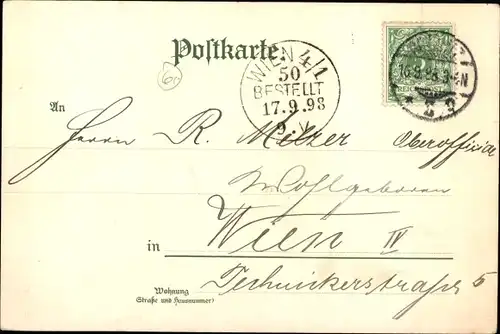 Postkarte
WIEN 4/1
50
BESTELLT
17.9.98
9.V
60
An
Herrn R. Melzer Oberoffizial
Wohlgeboren
in Wien IV
Technickerstraße 5
Wohnung
(Straße und Hausnummer)